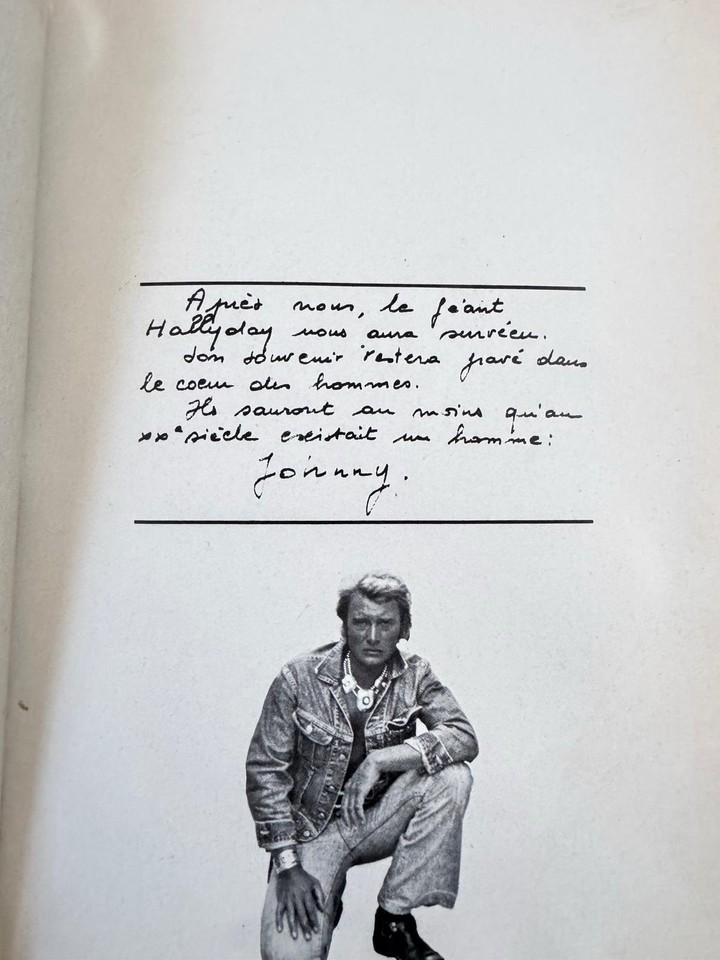 Après nous, le géant
Hallyday nous aura survécu.
Son souvenir restera gravé dans
le coeur des hommes.
Ils sauront au moins qu'au
XXe siècle existait un homme:
Johnny.